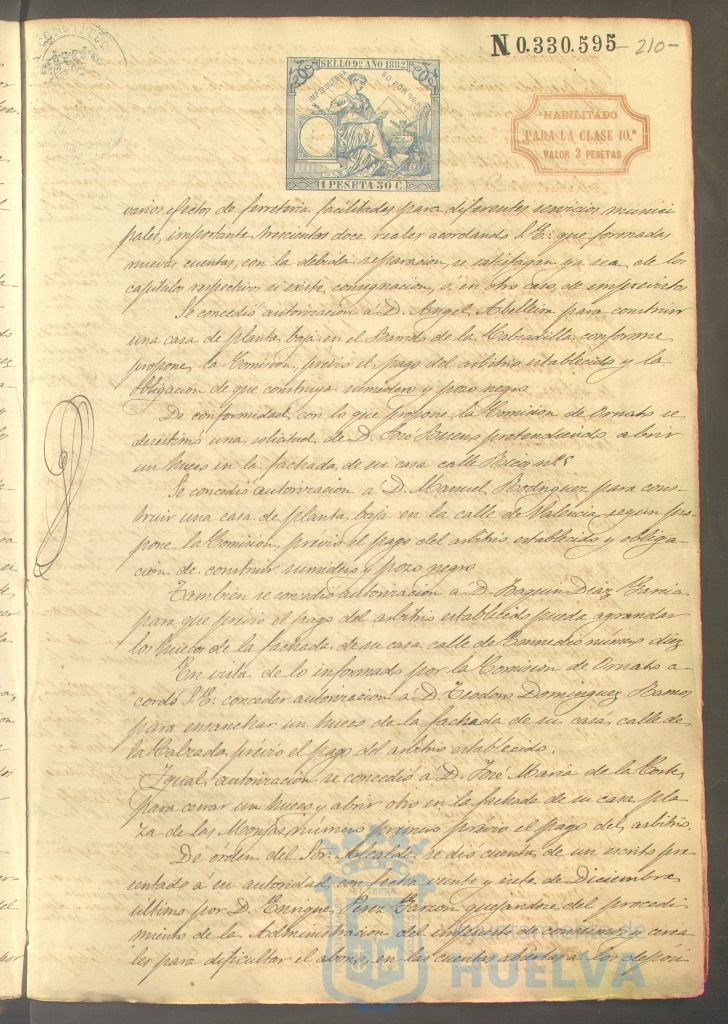 N 0.330.595 -210-
SELLO 9º AÑO 1882
IMPº DE GUERRA 50 POR %
1 PESETA 50 C.
HABILITADO
PARA LA CLASE 10.ª
VALOR 2 PESETAS
varios efectos de ferreteria facilitados para diferentes servicios munici
pales, importante trescientos doce reales acordando S. E. que formadas
nuevas cuentas, con la debida separacion, se satisfagan ya sea de los
capitulos respectivos si existe consignacion, ó en otro caso, de imprevistos
Se concedió autorizacion á D. Angel Abelleira para construir
una casa de planta baja en el Barrio de la conforme
propone la Comision, previo el pago del arbitrio establecido y la
obligacion de que construya sumidero y pozo negro
De conformidad con lo que propone la Comision de Ornato se
desestimó una solicitud de D. José pretendiendo abrir
un hueco en la fachada de su casa calle
Se concedió autorizacion á D. Manuel Rodriguez para cons-
truir una casa de planta baja en la calle de Valencia, segun pro
pone la Comision, previo el pago del arbitrio establecido y obliga-
cion de construir sumidero y pozo negro
Tambien se concedió autorizacion á D. Joaquin Diaz Garcia
para que previo el pago del arbitrio establecido pueda agrandar
los huecos de la fachada de su casa calle de Enmedio número diez
En vista de lo informado por la Comision de Ornato a-
cordó S. E. conceder autorizacion á D. Teodoro Dominguez Ramos
para ensanchar un hueco de la fachada de su casa calle de
la Calzada previo el pago del arbitrio establecido.
Igual autorizacion se concedió á D. José Maria de la Corte,
para cerrar un hueco y abrir otro en la fachada de su casa pla
za de las Monjas número primero previo el pago del arbitrio.
De órden del Sor. Alcalde se dió cuenta de un escrito pre
sentado á su autoridad, con fecha veinte y siete de Diciembre
último por D. Enrique Perez Garzon quejandose del procedi-
miento de la Administracion del impuesto de consumos y cerea
les para dificultar el abono, en las cuentas abiertas á los depósi
HUELVA